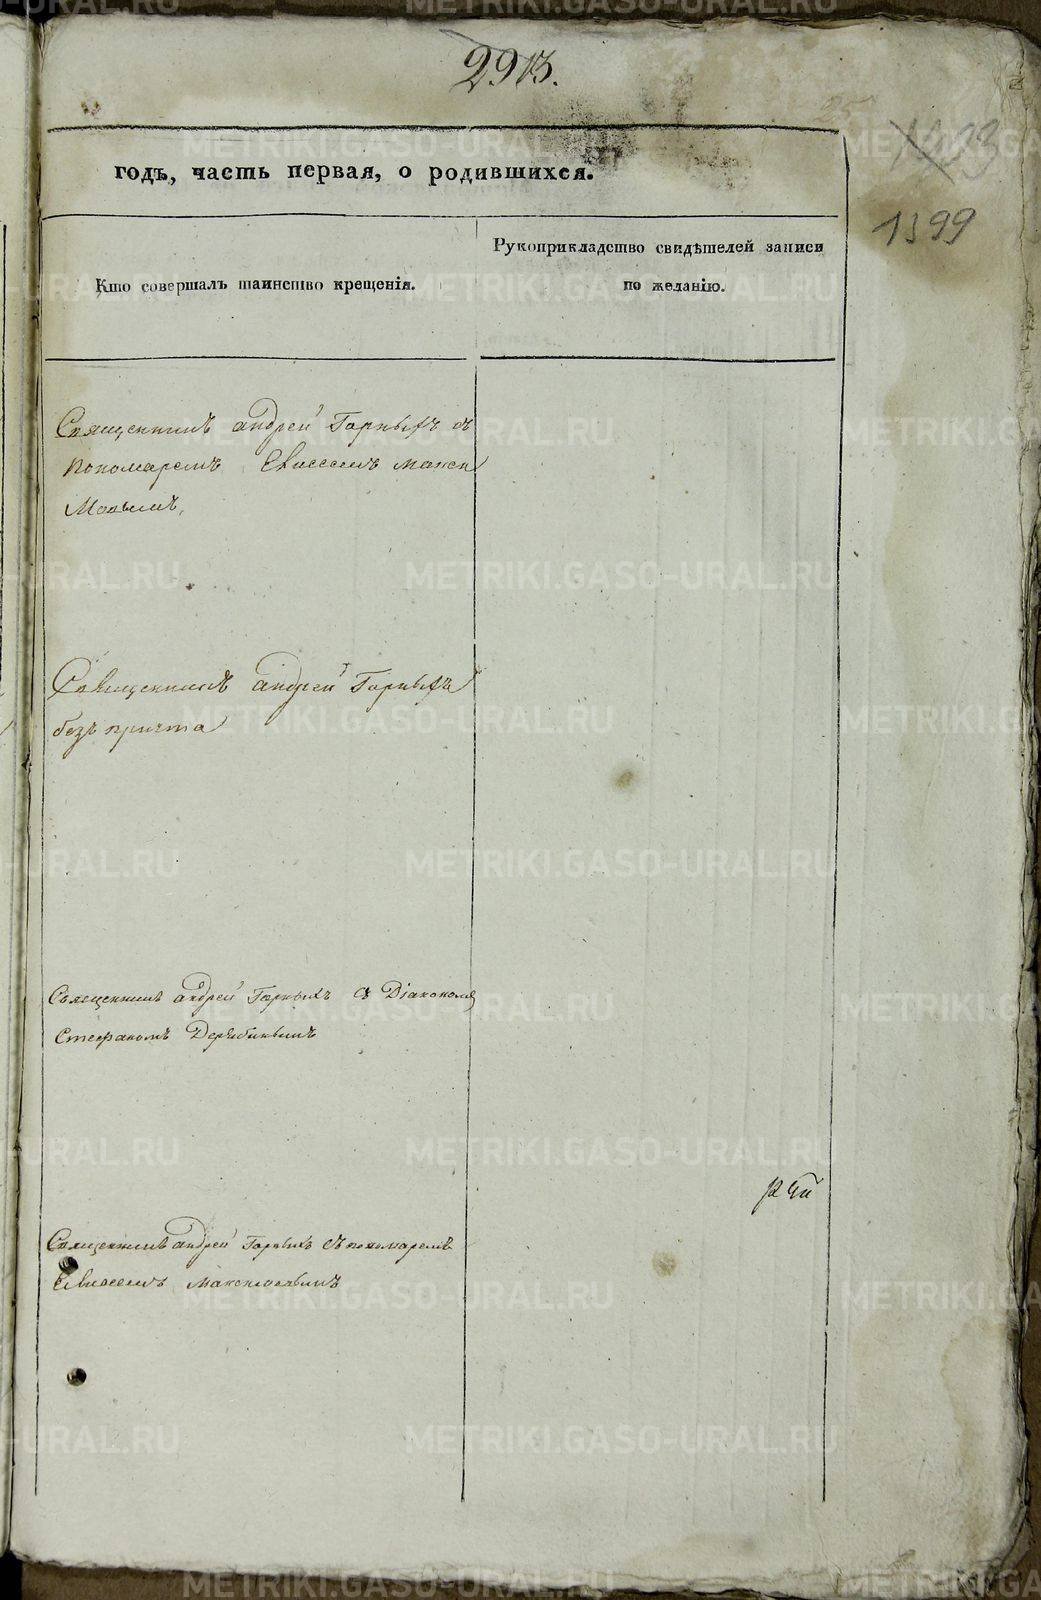 2913.
1399
годъ, часть первая, о родившихся.
Кто совершалъ таинство крещенія.
Рукоприкладство свидѣтелей записи
по желанію.
Священникъ андрей Горныхъ съ
пономаремъ Евсеемъ Макси
мовымъ,
Священникъ андрей Горныхъ
безъ причта
Священникъ андрей Горныхъ съ Діакономъ
Стефаномъ Дерябинымъ
Священникъ андрей Горныхъ съ пономаремъ
Евсеемъ Максимовымъ
METRIKI.GASO-URAL.RU